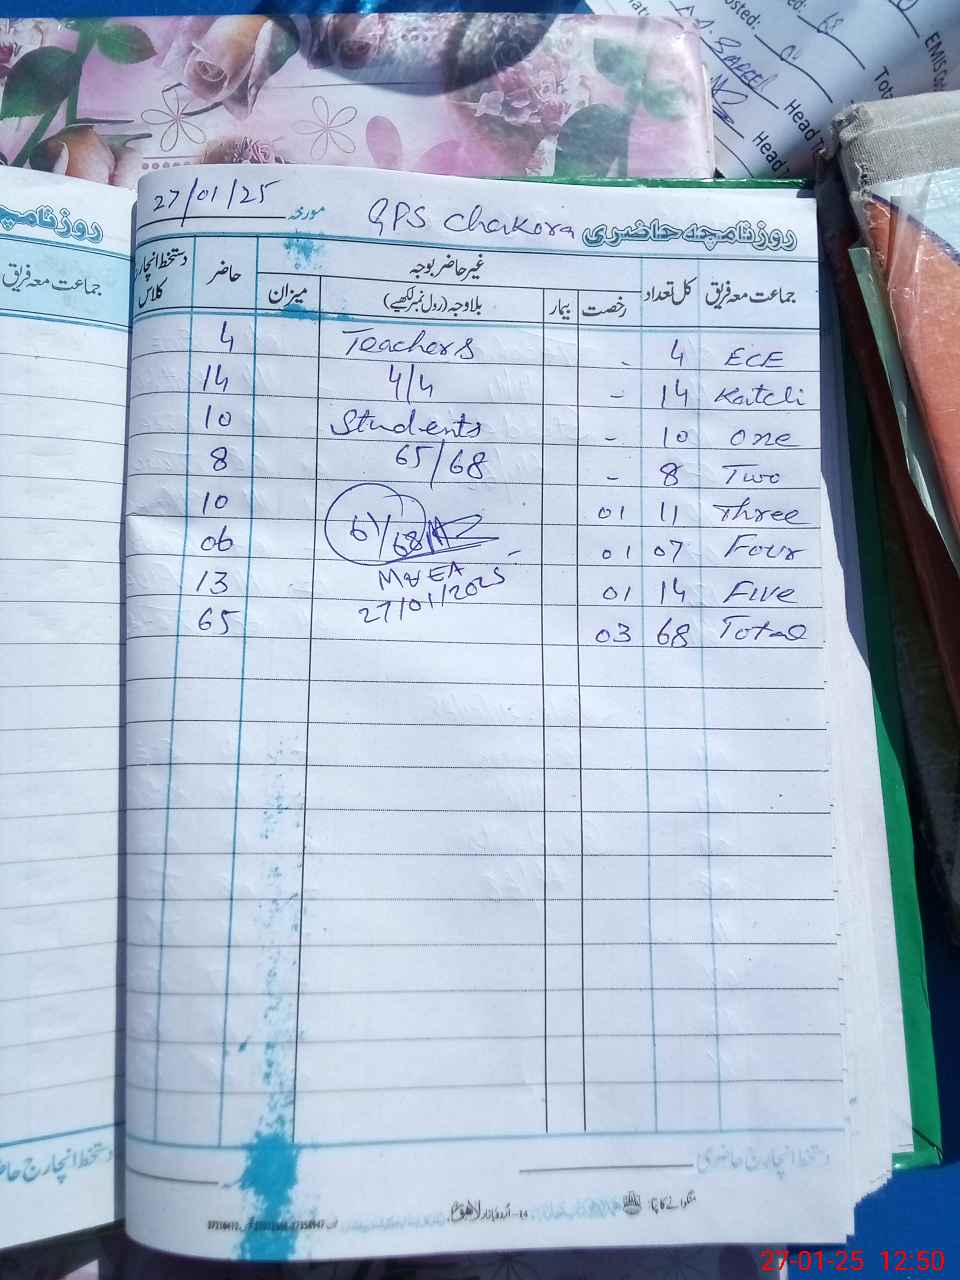 27/01/25 مورخہ GPS Chakora روزنامچہ حاضری
روزنامچہ
جماعت معہ فریق
جماعت معہ فریق کل تعداد غیر حاضر بوجہ حاضر دستخط انچارج کلاس
رخصت بیمار بلا وجہ (رول نمبر لکھیے) میزان
ECE 4 - Teachers 4
Katchi 14 - 4/4 14
One 10 - Students 10
Two 8 - 65/68 8
Three 11 01 10
Four 07 01 61/68 06
Five 14 01 M&EA 13
27/01/2025
Total 68 03 65
دستخط انچارج حاضری
دستخط انچارج
اردو بازار لاہور
Head
Head
EMIS
27-01-25 12:50